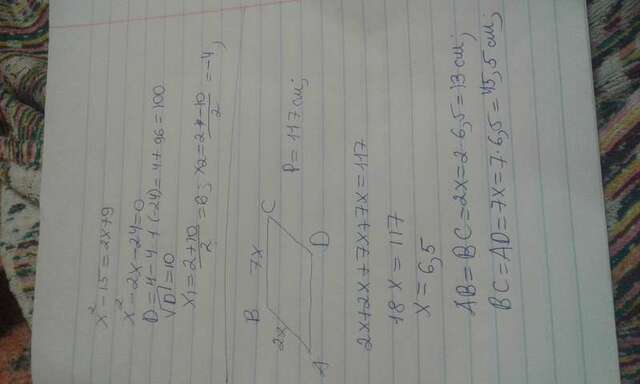 x² - 15 = 2x + 9
x² - 2x - 24 = 0
D = 4 - 4 · 1 · (-24) = 4 + 96 = 100
√D = 10
x₁ = (2+10)/2 = 6; x₂ = (2-10)/2 = -4;
B 7x C
2x
A D
P = 117 см;
2x+2x+7x+7x=117
18x = 117
x = 6,5
AB = BC = 2x = 2·6,5 = 13 см;
BC = AD = 7x = 7·6,5 = 45,5 см;